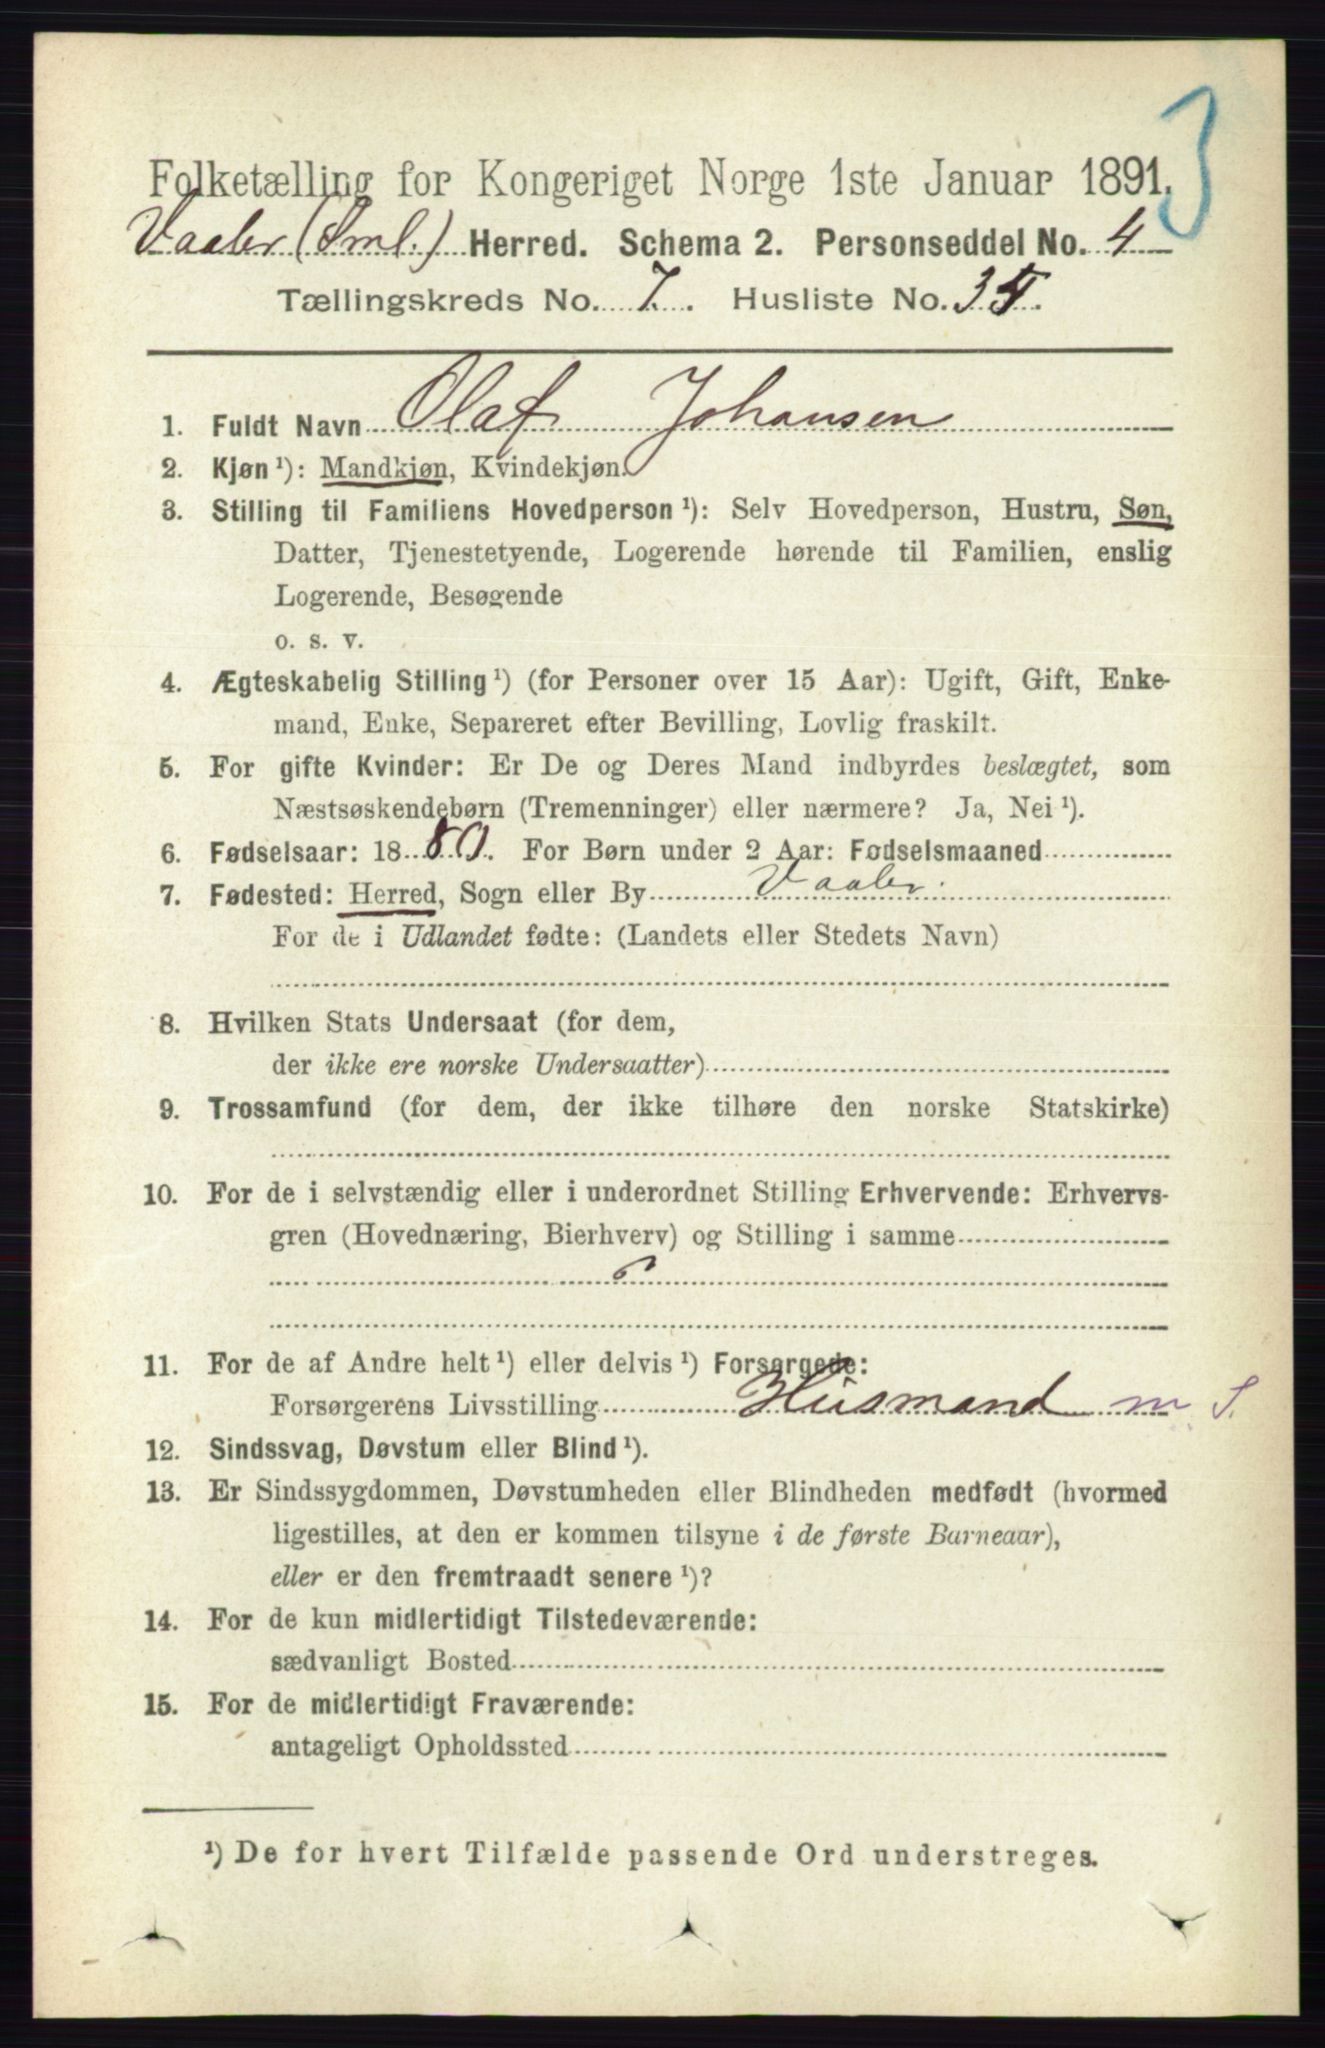 3
Folketælling for Kongeriget Norge 1ste Januar 1891.
Vaaler (Sml.) Herred. Schema 2. Personseddel No. 4
Tællingskreds No. 7. Husliste No. 35.
1. Fuldt Navn Olaf Johansen
2. Kjøn ¹): Mandkjøn, Kvindekjøn.
3. Stilling til Familiens Hovedperson ¹): Selv Hovedperson, Hustru, Søn,
Datter, Tjenestetyende, Logerende hørende til Familien, enslig
Logerende, Besøgende
o. s. v.
4. Ægteskabelig Stilling ¹) (for Personer over 15 Aar): Ugift, Gift, Enke-
mand, Enke, Separeret efter Bevilling, Lovlig fraskilt.
5. For gifte Kvinder: Er De og Deres Mand indbyrdes beslægtet, som
Næstsøskendebørn (Tremenninger) eller nærmere? Ja, Nei ¹).
6. Fødselsaar: 1880. For Børn under 2 Aar: Fødselsmaaned
7. Fødested: Herred, Sogn eller By Vaaler.
For de i Udlandet fødte: (Landets eller Stedets Navn)
8. Hvilken Stats Undersaat (for dem,
der ikke ere norske Undersaatter)
9. Trossamfund (for dem, der ikke tilhøre den norske Statskirke)
10. For de i selvstændig eller i underordnet Stilling Erhvervende: Erhvervs-
gren (Hovednæring, Bierhverv) og Stilling i samme
11. For de af Andre helt ¹) eller delvis ¹) Forsørgede:
Forsørgerens Livsstilling Husmand m. S.
12. Sindssvag, Døvstum eller Blind ¹).
13. Er Sindssygdommen, Døvstumheden eller Blindheden medfødt (hvormed
ligestilles, at den er kommen tilsyne i de første Barneaar),
eller er den fremtraadt senere ¹)?
14. For de kun midlertidigt Tilstedeværende:
sædvanligt Bosted
15. For de midlertidigt Fraværende:
antageligt Opholdssted
¹) De for hvert Tilfælde passende Ord understreges.